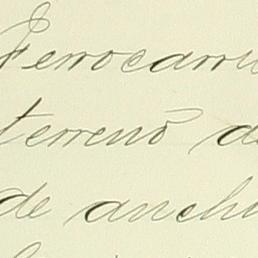 Ferrocarri
terreno de
de anchu